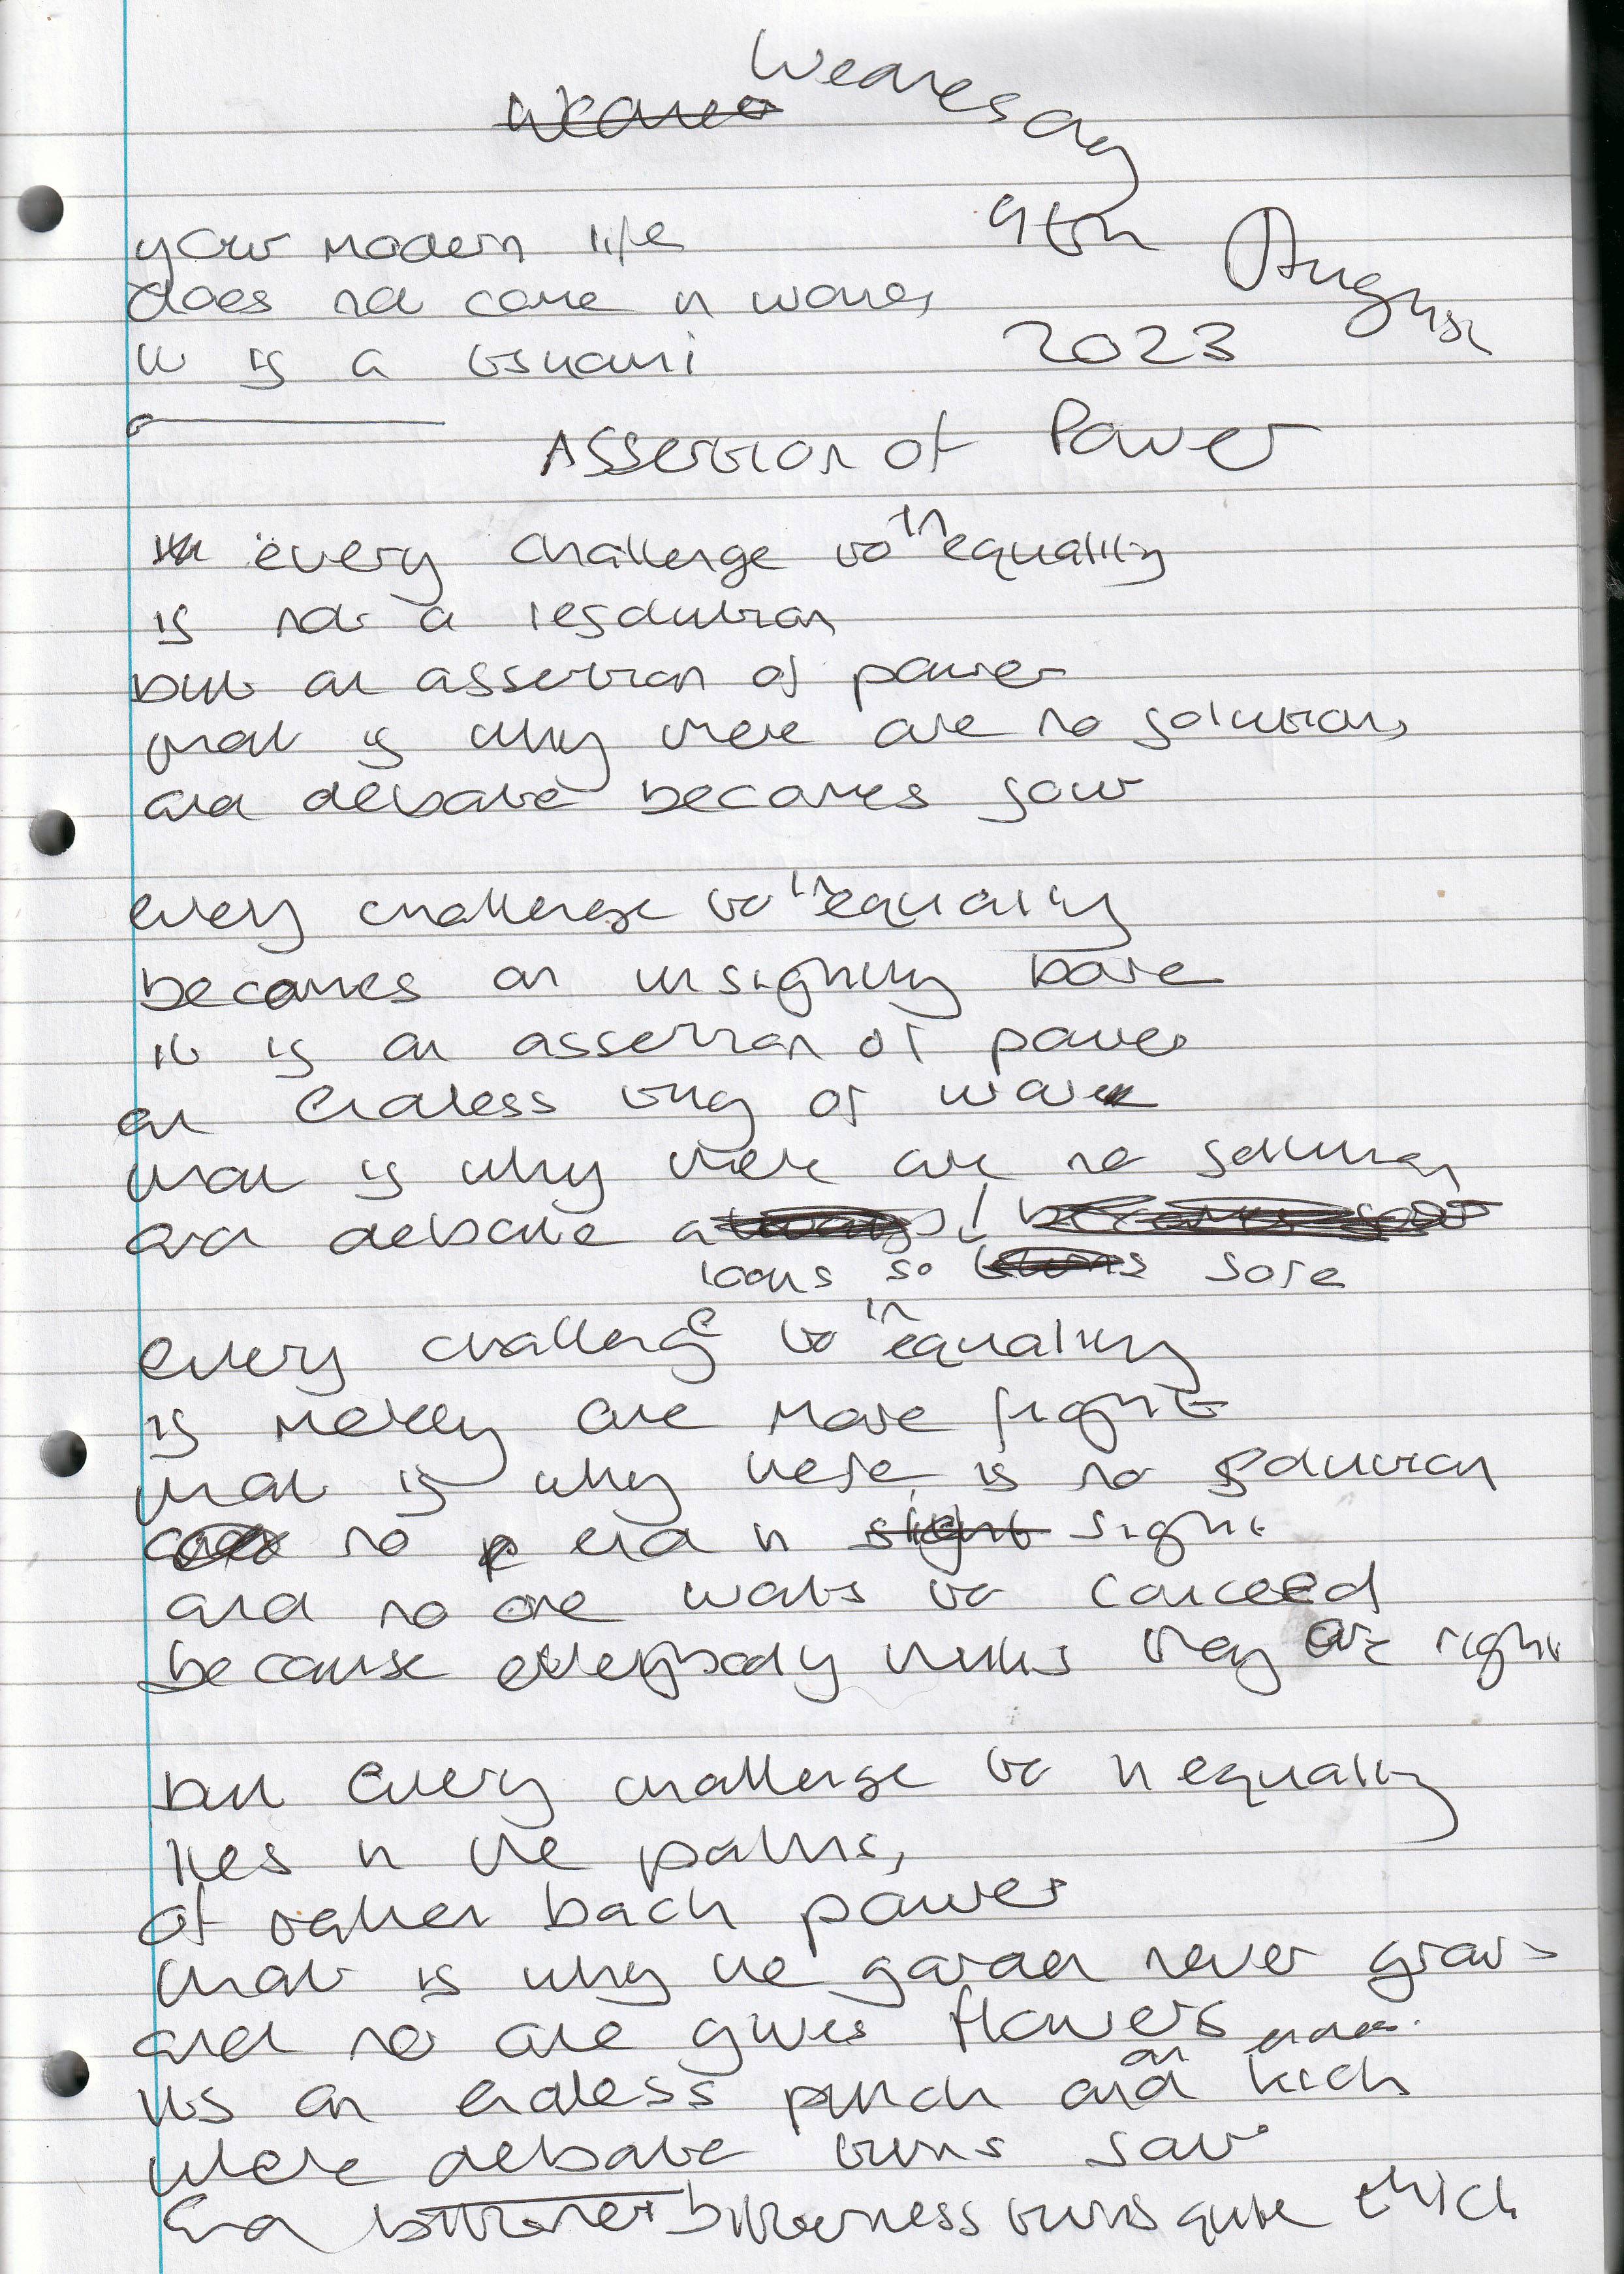 Wednesday
9th August
2023
your modern life
does not come in waves
it is a tsunami
Assertion of Power
every challenge to inequality
is not a resolution
but an assertion of power
that is why there are no solutions
and debate becomes sour
every challenge to inequality
becomes an unsightly bore
it is an assertion of power
an endless tug of war
that is why there are no solutions
and debate
looks so sore
every challenge to inequality
is merely one more fight
that is why there is no solution
no end in sight
and no one wants to conceed
because everybody thinks they are right
but every challenge to inequality
lies in the paths,
of taken back power
that is why the garden never grows
and no one gives flowers
its an endless punch and kick
where debate turns sour
and bitterness turns quite thick